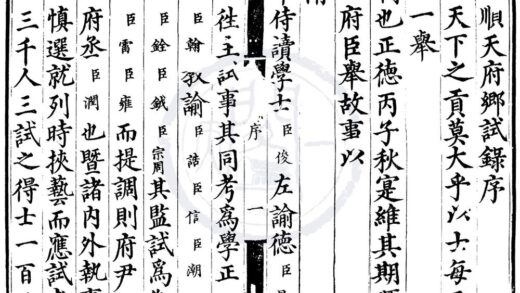 順天府鄉試錄序
天下之貢莫大乎以士每
一舉
也正德丙子秋寔維其期
府臣舉故事以
侍讀學士臣俊左諭德臣
序 一
往主試事其同考爲學正
臣翰教諭臣誥臣信臣潮
臣銓臣鉞臣宗周其監試爲
臣雷臣雍而提調則府尹
府丞臣潤也暨諸內外執
慎選就列時挾藝而應試
三千人三試之得士一百